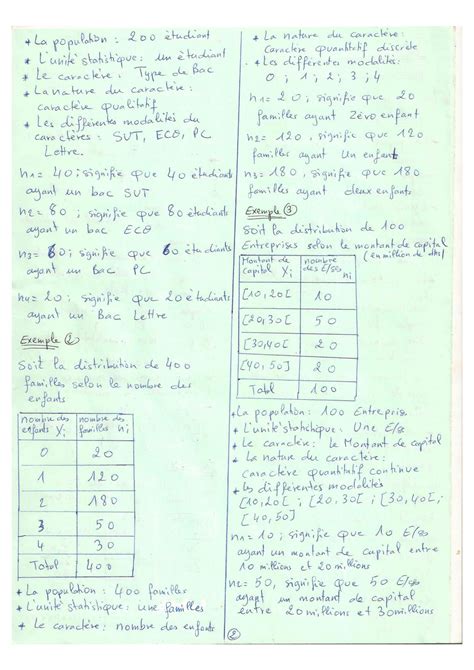 + La population : 200 étudiant
+ L'unité statistique : un étudiant
+ Le caractère : Type de Bac
+ La nature du caractère :
caractère qualitatif
+ Les différentes modalités du
caractères : SUT, ECO, PC
Lettre..
n1 = 40 ; signifie que 40 étudiants
ayant un bac SUT
n2 = 80 ; signifie que 80 étudiants
ayant un bac ECO
n3 = 60 ; signifie que 60 étudiants
ayant un Bac PC
n4 = 20 : signifie que 20 étudiants
ayant un Bac Lettre
Exemple ②
Soit la distribution de 400
familles selon le nombre des
enfants
nombre des enfants Xi | nombre des familles ni
0 | 20
1 | 120
2 | 180
3 | 50
4 | 30
Total | 400
+ La population : 400 familles
+ L'unité statistique : une familles
+ Le caractère : nombre des enfants
+ La nature du caractère :
Caractère quantitatif discrète
+ Les différentes modalités :
0 ; 1 ; 2 ; 3 ; 4
n1 = 20 ; signifie que 20
familles ayant Zéro enfant
n2 = 120 , signifie que 120
familles ayant Un enfant
n3 = 180 , signifie que 180
familles ayant deux enfants
Exemple ③
Soit la distribution de 100
Entreprises selon le montant de capital
(en million de dhs)
Montant de capital Xi | nombre des E/ses ni
[10,20[ | 10
[20,30[ | 50
[30,40[ | 20
[40,50] | 20
Total | 100
+ La population : 100 Entreprise
+ L'unité statistique : Une E/se
+ Le caractère : Le Montant de capital
+ La nature du caractère :
caractère quantitatif continue
+ Les différentes modalités
[10,20[ ; [20,30[ ; [30,40[ ;
[40,50]
n1 = 10 ; signifie que 10 E/ses
ayant un montant de capital entre
10 millions et 20 millions
n2 = 50, signifie que 50 E/ses
ayant un montant de capital
entre 20 millions et 30 millions
②